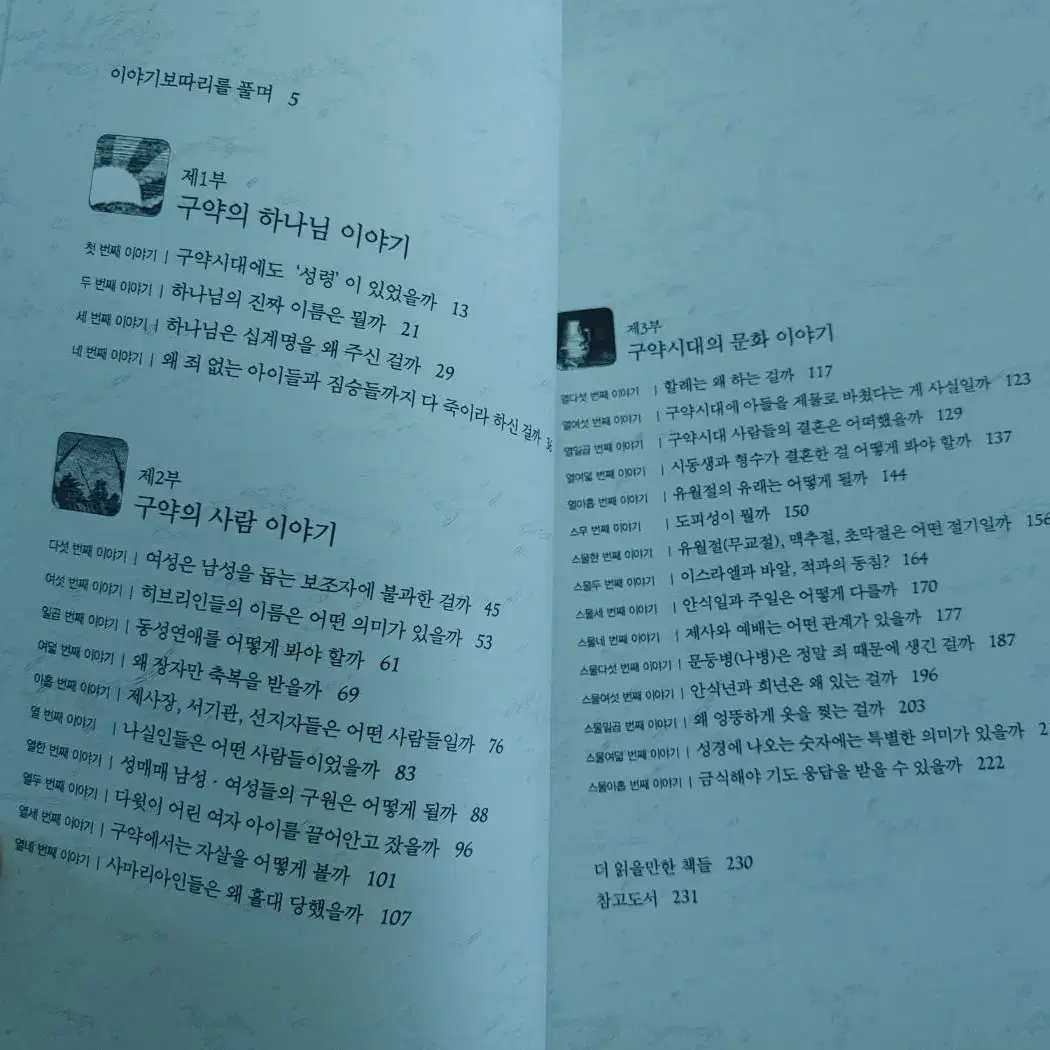 이야기보따리를 풀며 5
제1부
구약의 하나님 이야기
첫 번째 이야기 | 구약시대에도 '성령'이 있었을까 13
두 번째 이야기 | 하나님의 진짜 이름은 뭘까 21
세 번째 이야기 | 하나님은 십계명을 왜 주신 걸까 29
네 번째 이야기 | 왜 죄 없는 아이들과 짐승들까지 다 죽이라 하신 걸까
제2부
구약의 사람 이야기
다섯 번째 이야기 | 여성은 남성을 돕는 보조자에 불과한 걸까 45
여섯 번째 이야기 | 히브리인들의 이름은 어떤 의미가 있을까 53
일곱 번째 이야기 | 동성연애를 어떻게 봐야 할까 61
여덟 번째 이야기 | 왜 장자만 축복을 받을까 69
아홉 번째 이야기 | 제사장, 서기관, 선지자들은 어떤 사람들일까 76
열 번째 이야기 | 나실인들은 어떤 사람들이었을까 83
열한 번째 이야기 | 성매매 남성·여성들의 구원은 어떻게 될까 88
열두 번째 이야기 | 다윗이 어린 여자 아이를 끌어안고 잤을까 96
열세 번째 이야기 | 구약에서는 자살을 어떻게 볼까 101
열네 번째 이야기 | 사마리아인들은 왜 홀대 당했을까 107
제3부
구약시대의 문화 이야기
열다섯 번째 이야기 | 할례는 왜 하는 걸까 117
열여섯 번째 이야기 | 구약시대에 아들을 제물로 바쳤다는 게 사실일까 123
열일곱 번째 이야기 | 구약시대 사람들의 결혼은 어떠했을까 129
열여덟 번째 이야기 | 시동생과 형수가 결혼한 걸 어떻게 봐야 할까 137
열아홉 번째 이야기 | 유월절의 유래는 어떻게 될까 144
스무 번째 이야기 | 도피성이 뭘까 150
스물한 번째 이야기 | 유월절(무교절), 맥추절, 초막절은 어떤 절기일까 156
스물두 번째 이야기 | 이스라엘과 바알, 적과의 동침? 164
스물세 번째 이야기 | 안식일과 주일은 어떻게 다를까 170
스물네 번째 이야기 | 제사와 예배는 어떤 관계가 있을까 177
스물다섯 번째 이야기 | 문둥병(나병)은 정말 죄 때문에 생긴 걸까 187
스물여섯 번째 이야기 | 안식년과 희년은 왜 있는 걸까 196
스물일곱 번째 이야기 | 왜 엉뚱하게 옷을 찢는 걸까 203
스물여덟 번째 이야기 | 성경에 나오는 숫자에는 특별한 의미가 있을까
스물아홉 번째 이야기 | 금식해야 기도 응답을 받을 수 있을까 222
더 읽을만한 책들 230
참고도서 231